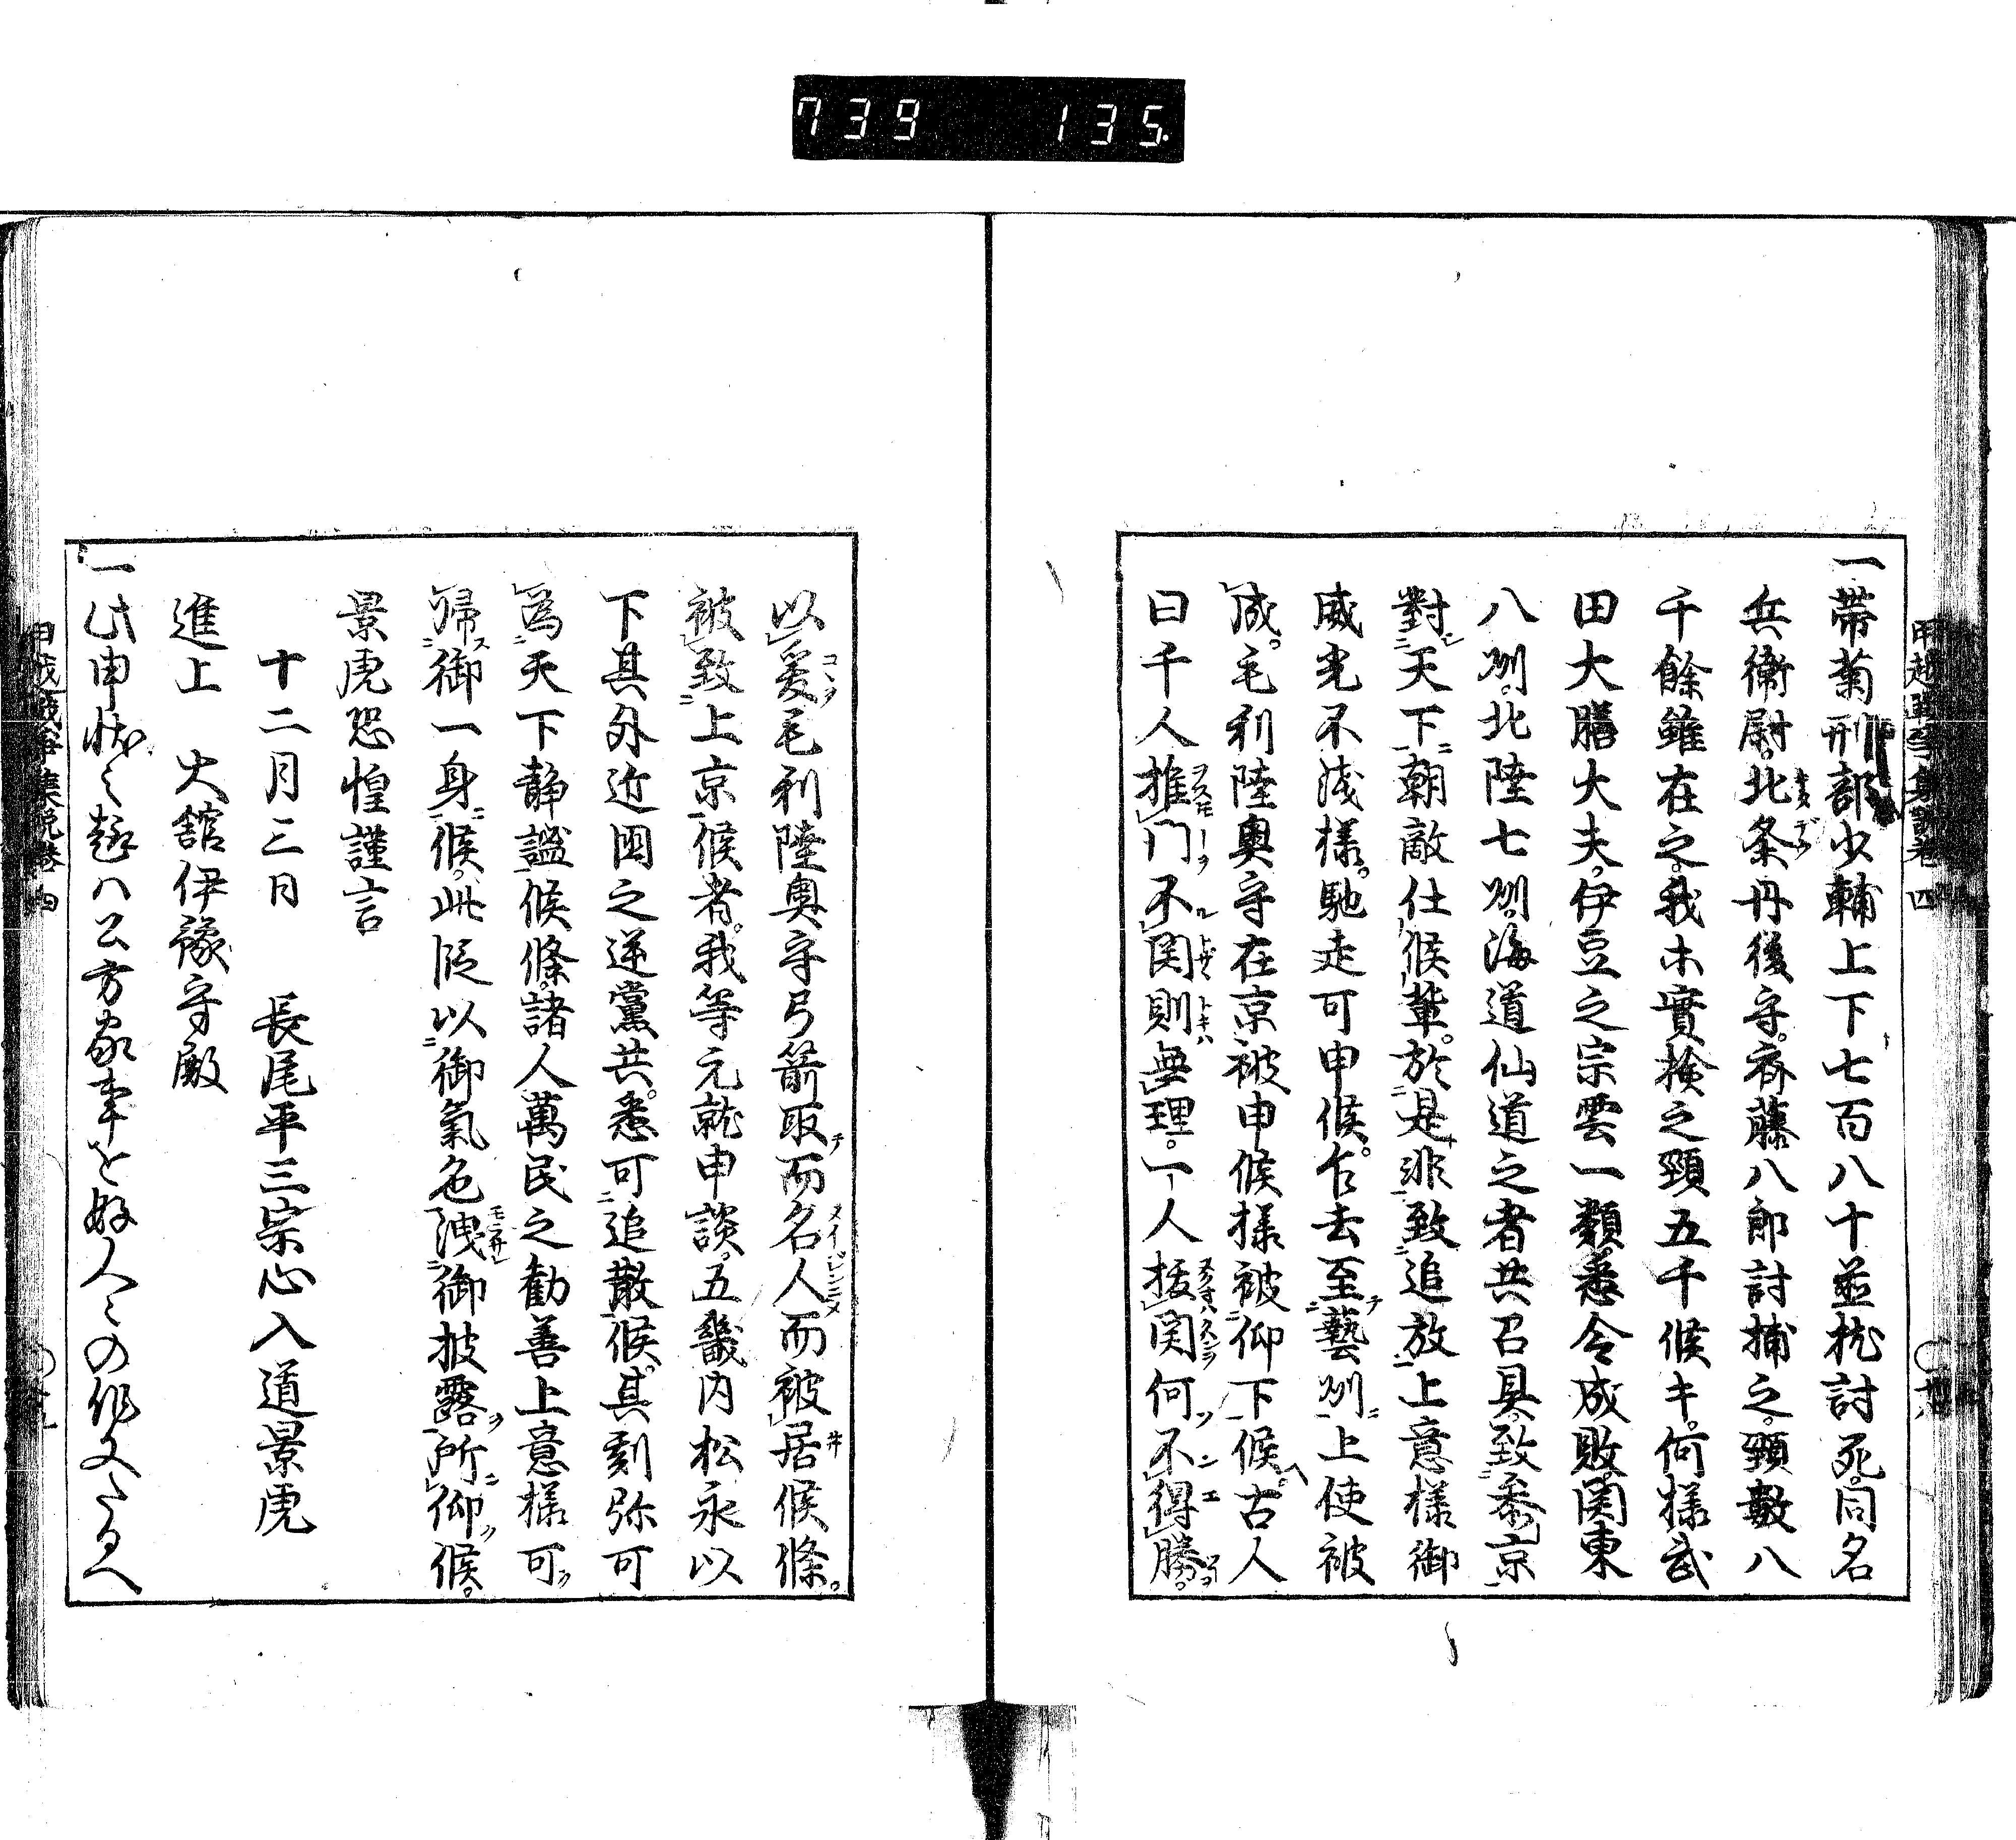 739 135
甲越戰爭集説卷四
一帯菊刑部少輔上下七百八十並枕討死。同名
兵衛尉。北条丹後守。斎藤八郎討捕之。頸數八
千餘雖在之。我木實検之頸五千候キ。何様武
田大膳大夫。伊豆之宗雲一類悉令成敗。関東
八州。北陸七州。海道仙道之者共召具。致参京
對天下朝敵仕候輩。於是非致追放上意様御
威光不浅様。馳走可申候。乍去至藝州上使被
成。毛利陸奥守在京被申候様被仰下候。古人
曰千人推門不関則無理。一人抜関何不得勝。
以爰毛利陸奥守弓箭取而名人而被居候條。
被致上京候者。我等元就申談。五畿内松永以
下其外近国之逆黨共。悉可追散候。其刻弥可
為天下静謐候條。諸人萬民之勧善上意様可
帰御一身候。此段以御氣色洩御披露所仰候。
景虎恐惶謹言
十二月三日　長尾平三宗心入道景虎
進上　大舘伊豫守殿
一此申状之趣ハ公方家事を好人々の作文たるへ
甲越戰爭集説卷四